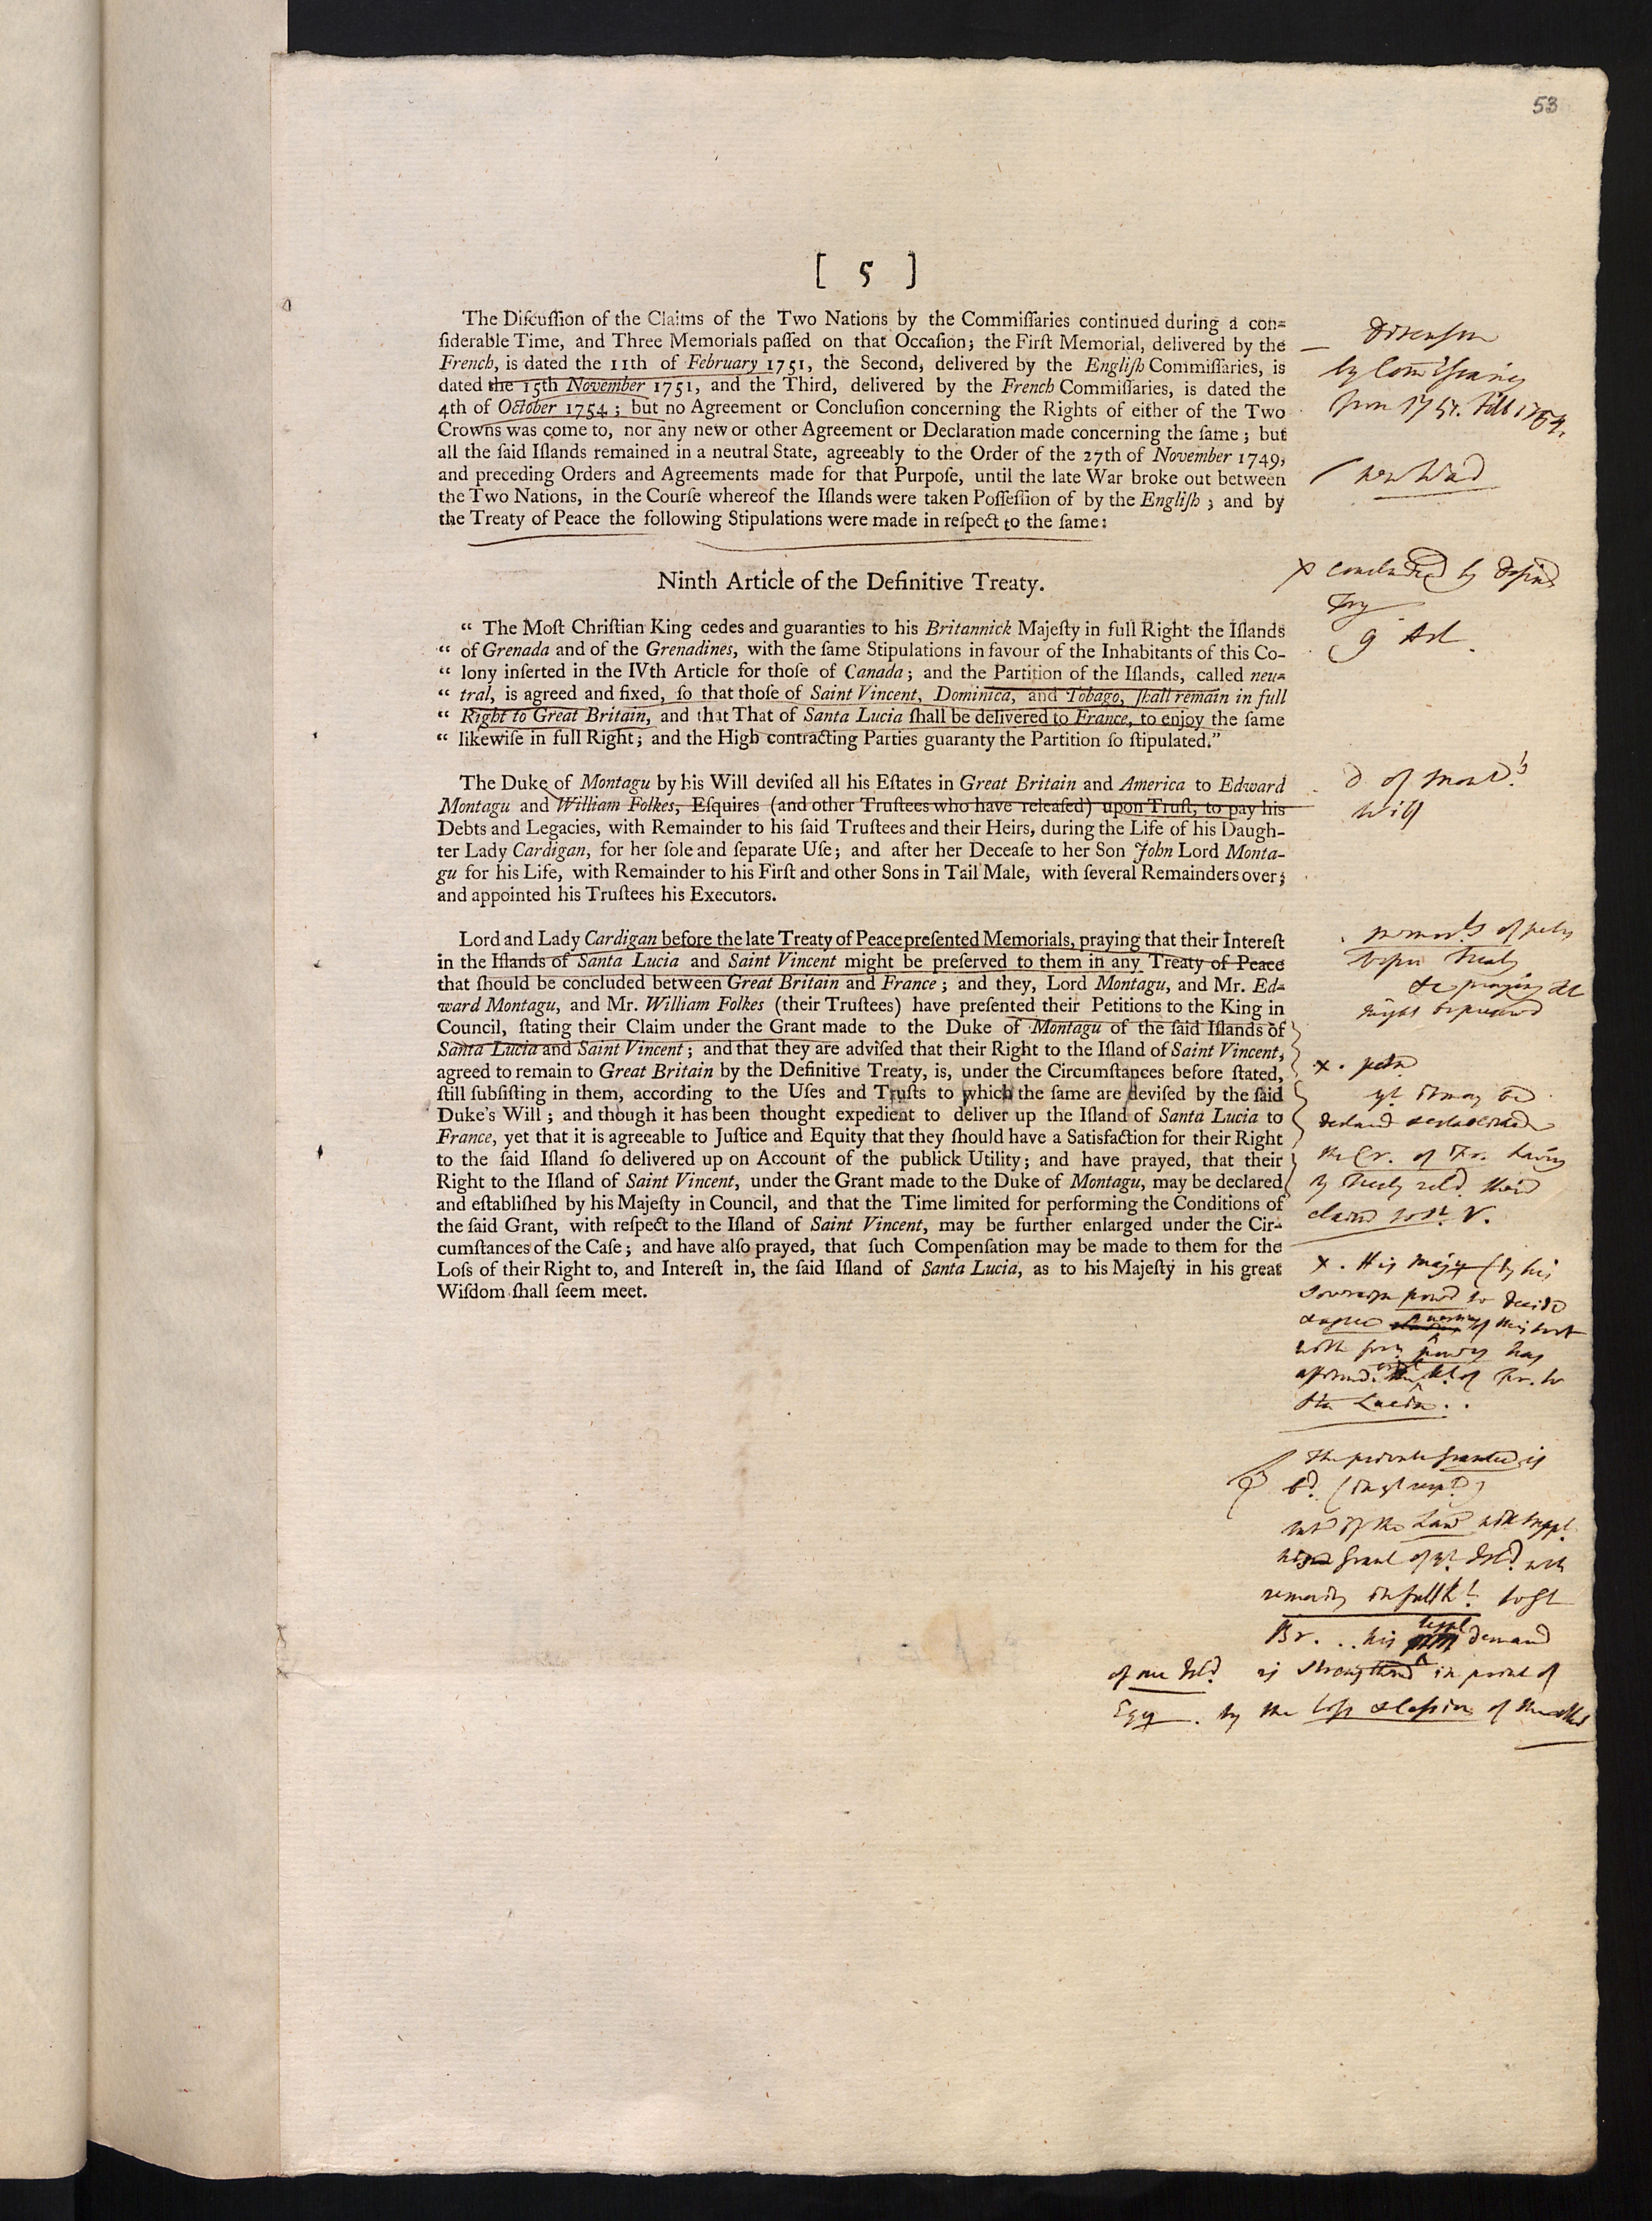 53
[ 5 ]
The Diſcuſſion of the Claims of the Two Nations by the Commiſſaries continued during a con-
ſiderable Time, and Three Memorials paſſed on that Occaſion; the Firſt Memorial, delivered by the
French, is dated the 11th of February 1751, the Second, delivered by the Engliſh Commiſſaries, is
dated the 15th November 1751, and the Third, delivered by the French Commiſſaries, is dated the
4th of October 1754; but no Agreement or Concluſion concerning the Rights of either of the Two
Crowns was come to, nor any new or other Agreement or Declaration made concerning the ſame; but
all the ſaid Iſlands remained in a neutral State, agreeably to the Order of the 27th of November 1749,
and preceding Orders and Agreements made for that Purpoſe, until the late War broke out between
the Two Nations, in the Courſe whereof the Iſlands were taken Poſſeſſion of by the Engliſh; and by
the Treaty of Peace the following Stipulations were made in reſpect to the ſame:
by
from 1751. till 1754.
Ninth Article of the Definitive Treaty.
x concluded by
9 Art.
“ The Moſt Chriſtian King cedes and guaranties to his Britannick Majeſty in full Right the Iſlands
“ of Grenada and of the Grenadines, with the ſame Stipulations in favour of the Inhabitants of this Co-
“ lony inſerted in the IVth Article for thoſe of Canada; and the Partition of the Iſlands, called neu-
“ tral, is agreed and fixed, ſo that thoſe of Saint Vincent, Dominica, and Tobago, ſhall remain in full
“ Right to Great Britain, and that That of Santa Lucia ſhall be delivered to France, to enjoy the ſame
“ likewiſe in full Right; and the High contracting Parties guaranty the Partition ſo ſtipulated.”
The Duke of Montagu by his Will deviſed all his Eſtates in Great Britain and America to Edward
Montagu and William Folkes, Eſquires (and other Truſtees who have releaſed) upon Truſt, to pay his
Debts and Legacies, with Remainder to his ſaid Truſtees and their Heirs, during the Life of his Daugh-
ter Lady Cardigan, for her ſole and ſeparate Uſe; and after her Deceaſe to her Son John Lord Monta-
gu for his Life, with Remainder to his Firſt and other Sons in Tail Male, with ſeveral Remainders over;
and appointed his Truſtees his Executors.
D of
Will
Lord and Lady Cardigan before the late Treaty of Peace preſented Memorials, praying that their Intereſt
in the Iſlands of Santa Lucia and Saint Vincent might be preſerved to them in any Treaty of Peace
that ſhould be concluded between Great Britain and France; and they, Lord Montagu, and Mr. Ed-
ward Montagu, and Mr. William Folkes (their Truſtees) have preſented their Petitions to the King in
Council, ſtating their Claim under the Grant made to the Duke of Montagu of the ſaid Iſlands of
Santa Lucia and Saint Vincent; and that they are adviſed that their Right to the Iſland of Saint Vincent,
agreed to remain to Great Britain by the Definitive Treaty, is, under the Circumſtances before ſtated,
ſtill ſubſiſting in them, according to the Uſes and Truſts to which the ſame are deviſed by the ſaid
Duke's Will; and though it has been thought expedient to deliver up the Iſland of Santa Lucia to
France, yet that it is agreeable to Juſtice and Equity that they ſhould have a Satisfaction for their Right
to the ſaid Iſland ſo delivered up on Account of the publick Utility; and have prayed, that their
Right to the Iſland of Saint Vincent, under the Grant made to the Duke of Montagu, may be declared
and eſtabliſhed by his Majeſty in Council, and that the Time limited for performing the Conditions of
the ſaid Grant, with reſpect to the Iſland of Saint Vincent, may be further enlarged under the Cir-
cumſtances of the Caſe; and have alſo prayed, that ſuch Compenſation may be made to them for the
Loſs of their Right to, and Intereſt in, the ſaid Iſland of Santa Lucia, as to his Majeſty in his great
Wiſdom ſhall ſeem meet.
the Cr. of Fr. having
claim to St. V.
x. His (by his
of Fr. to
Sta Lucia..
The private is
remains in full
Br... his demand
of one is in point of
by the loss of